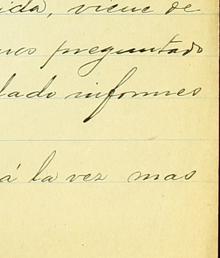 ida, viene de
mos preguntado
lado informes
á la vez mas